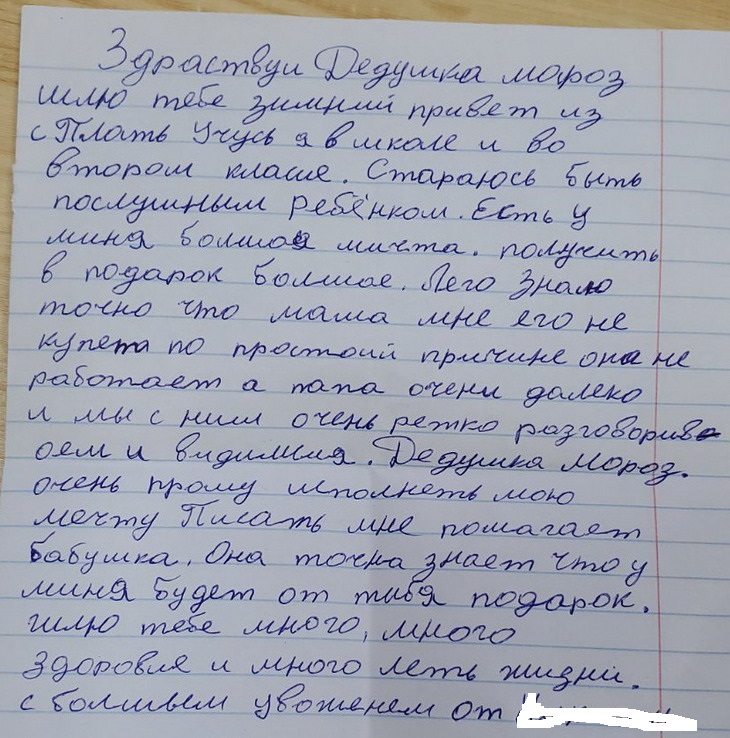 Здраствуи Дедушка мороз
шлю тебе зимний привет из
с Плать Учусь я в школе и во
втором класе. Стараюсь быть
послушным ребёнком. Есть у
миня болшоя мичта. получить
в подарок болшое. Лего Знаю
точно что мама мне его не
купета по простоий причине она не
работает а папа очени далеко
и мы с ним очень ретко разговорив
оем и видиммя. Дедушка Мороз.
очень прошу исполнеть мою
мечту Писать мне помагает
бабушка. Она точна знает что у
миня будет от тибя подарок.
шлю тебе много, много
здоровие и много леть жизни.
с болшвем увоженем от